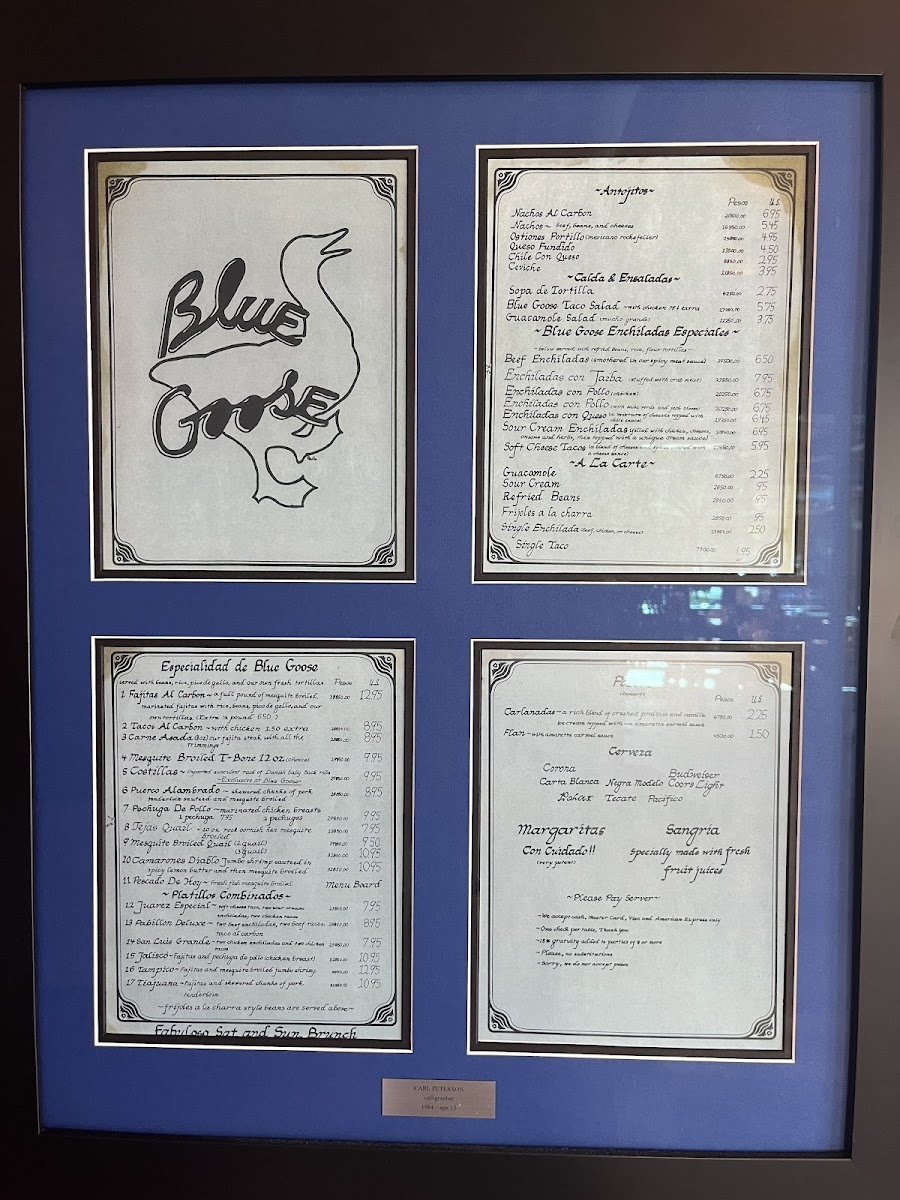 Blue
Goose
~Antojitos~
Pesos U.S.
Nachos Al Carbon 6.95
Nachos ~ beef, beans, and cheeses 5.45
Ostiones Portillo (mexicano rockefeller) 4.95
Queso Fundido 4.50
Chile Con Queso 2.95
Ceviche 3.95
~Calda & Ensaladas~
Sopa de Tortilla 2.75
Blue Goose Taco Salad ~with chicken 75¢ extra 5.75
Guacamole Salad (mucho grande) 3.75
~Blue Goose Enchiladas Especiales~
~below served with refried beans, rice, flour tortillas~
Beef Enchiladas (smothered in our spicy meat sauce) 19500.00 6.50
Enchiladas con Jaiba (stuffed with crab meat) 23850.00 7.95
Enchiladas con Pollo (chicken) 20250.00 6.75
Enchiladas con Pollo (with salsa verde and jack cheese) 20250.00 6.75
Enchiladas con Queso (a mixture of cheeses topped with 6.45
chile sauce)
Sour Cream Enchiladas (filled with chicken, cheese, 6.95
onions and herbs, then topped with a unique cream sauce)
Soft Cheese Tacos (a blend of cheeses and spices covered with 5.95
a cheese sauce)
~A La Carte~
Guacamole 6750.00 2.25
Sour Cream 2850.00 .95
Refried Beans 2850.00 .95
Frijoles a la charra 2850.00 .95
Single Enchilada (beef, chicken, or cheese) 2.50
Single Taco 1.95
Especialidad de Blue Goose
served with beans, rice, pico de gallo, and our own fresh tortillas Pesos U.S.
1 Fajitas Al Carbon ~ a full pound of mesquite broiled, 12.95
marinated fajitas with rice, beans, pico de gallo, and our
own tortillas (Extra ½ pound 6.50)
2 Tacos Al Carbon ~ with chicken 1.50 extra 8.95
3 Carne Asada (8oz) our fajita steak with all the 8.95
trimmings
4 Mesquite Broiled T-Bone 12 oz (choice) 9.95
5 Costillas ~ imported succulent rack of Danish Baby Back ribs 9.95
~Exclusive at Blue Goose~
6 Puerco Alambrado ~ skewered chunks of pork 8.95
tenderloin sauteed and mesquite broiled
7 Pechuga De Pollo ~ marinated chicken breasts
1 pechuga 7.95 2 pechugas 9.95
8 Tejas Quail ~ 20 oz. rock cornish hen mesquite 7.95
broiled
9 Mesquite Broiled Quail (2 quail) 9.50
(3 quail) 10.95
10 Camarones Diablo Jumbo shrimp sauteed in 10.95
spicy lemon butter and then mesquite broiled
11 Pescado De Hoy ~ Fresh fish mesquite broiled Menu Board
~ Platillos Combinados ~
12 Juarez Especial ~ 7.95
enchiladas, two chicken tacos
13 Pabillon Deluxe ~ two beef enchiladas, two beef tacos, 8.95
taco al carbon
14 San Luis Grande ~ two chicken enchiladas and two chicken 7.95
tacos
15 Jalisco ~ Fajitas and pechuga de pollo (chicken breast) 10.95
16 Tampico ~ Fajitas and mesquite broiled jumbo shrimp 12.95
17 Tiajuana ~ Fajitas and skewered chunks of pork 10.95
tenderloin
~frijoles a la charra style beans are served above~
Fabuloso Sat. and Sun. Brunch
Pesos U.S.
Carlanadas ~ a rich blend of crushed pralines and vanilla 6750.00 2.25
ice cream topped with an amaretto carmel sauce
Flan ~ with amaretto carmel sauce 4500.00 1.50
Cerveza
Corona Budweiser
Carta Blanca Negra Modelo Coors Light
Tecate Pacifico
Margaritas Sangria
Con Cuidado!! Specially made with fresh
(very potent) fruit juices
~Please Pay Server~
~We accept cash, Master Card, Visa and American Express only
~One check per table, Thank You
~15% gratuity added to parties of 8 or more
~Please, no substitutions
~Sorry, we do not accept pesos
CARL PETERSON
calligrapher
1984 - age 13